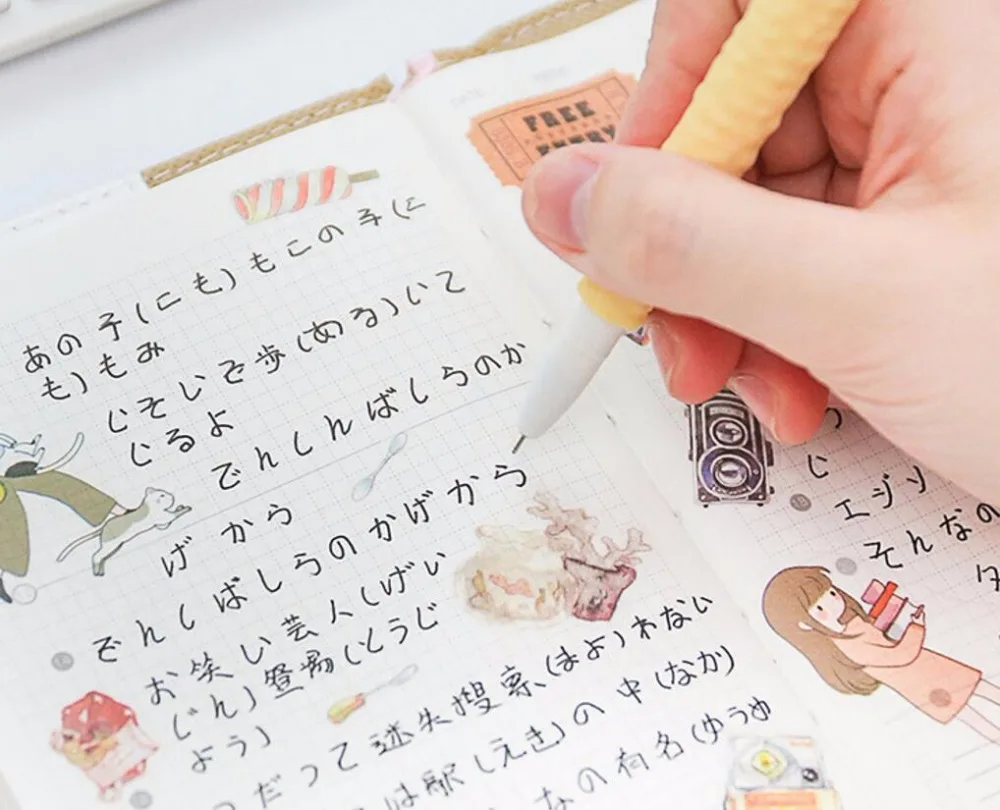 あの子(にも)もこの子(に
も)もみ
じそじで歩(ある)いて
じるよ
でんしんばしらのか
げから
でんしばしらのかげから
お笑しい芸人(げい
じん)登場(とうじ
よう)
だって迷失搜索(まよ)わない
は駅(えき)の中(なか)
なの有名(ゆうめ
FREE
ENTRY
じ
エジソ
そんなの